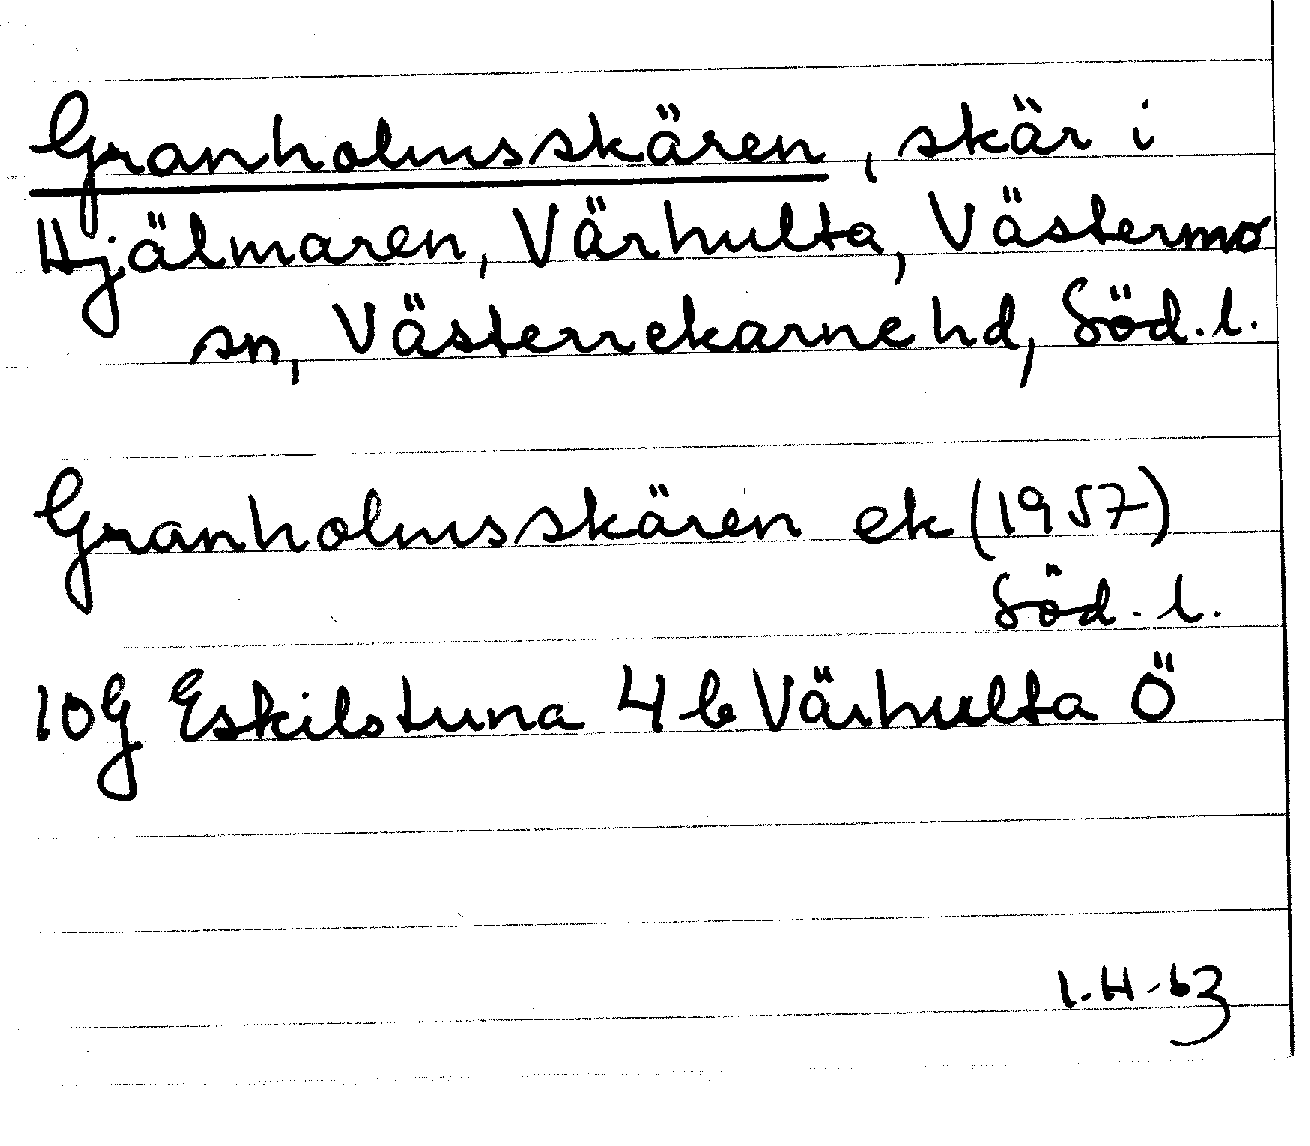 Granholmsskären, skär i
Hjälmaren, Värhulta, Västermo
sn, Västerrekarne hd, Söd.l.
Granholmsskären ek (1957)
Söd.l.
10G Eskilstuna 4b Värhulta Ö
I.H-63